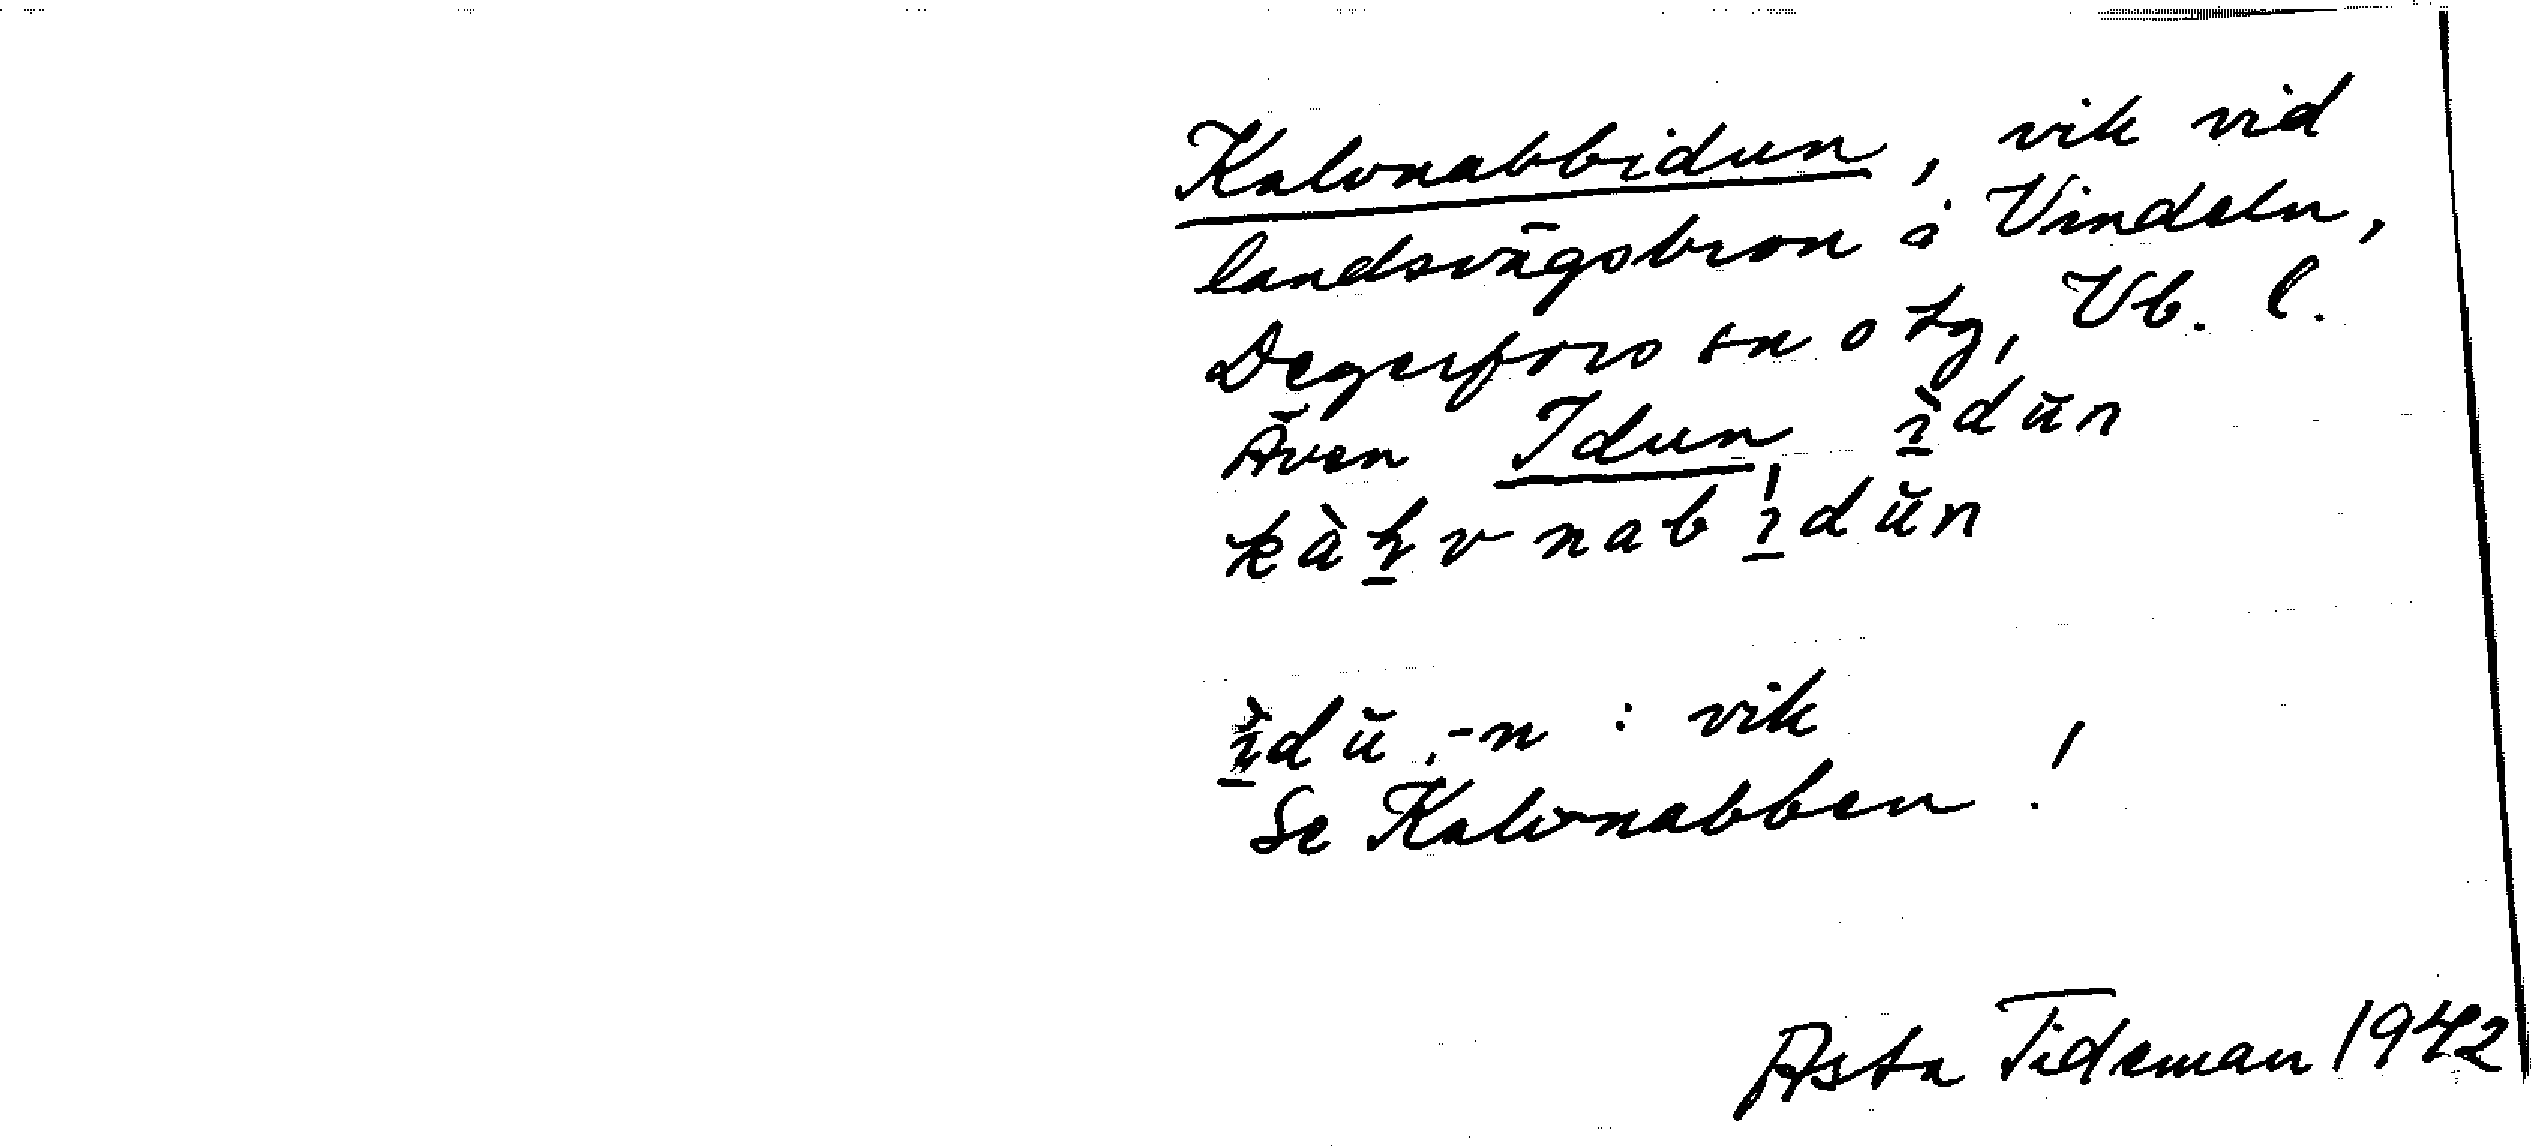 Kalvnabbidun, vik vid
landsvägsbron i Vindeln,
Degerfors sn o tg, Vb. l.
Även Idun, ı̱̀dŭn
kàḻvnabı̱dŭn
ı̱̀dŭ, -n : vik
Se Kalvnabben!
Asta Tideman 1942